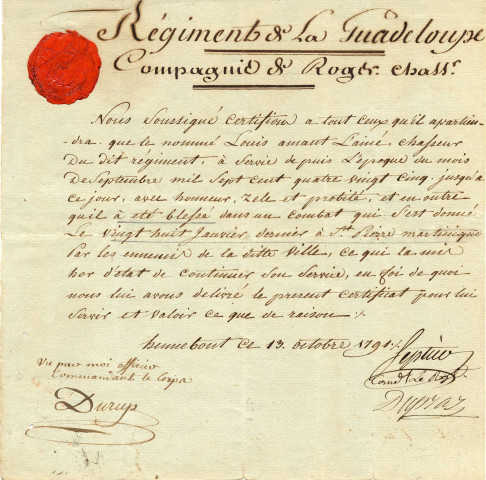 Régiment de La Guadeloupe
Compagnie de Roger chass.r
Nous Soussigné certifions a tout ceux qu'il apartien-
-dra que le nommé Louis amant Lainé, chasseur
Du dit régiment, à Servie depuis L'époque du mois
De Septembre mil Sept cent quatre vingt cinq jusqu'a
ce jour, avec honneur, zele et probité, et en outre
qu'il à été blessé dans un combat qui S'est donné
Le vingt huit Janvier dernier à St. Piere martinique
Par les ennemis de la ditte Ville, ce qui la mis
hor d'état de continuer Son Service, en foi de quoi
nous lui avons delivré le present certificat pour lui
Servir et valoir ce que de raison
hennebont ce 13. octobre 1791.
Vu par moi officier
Commandant le Corps
Durup
Dupraz